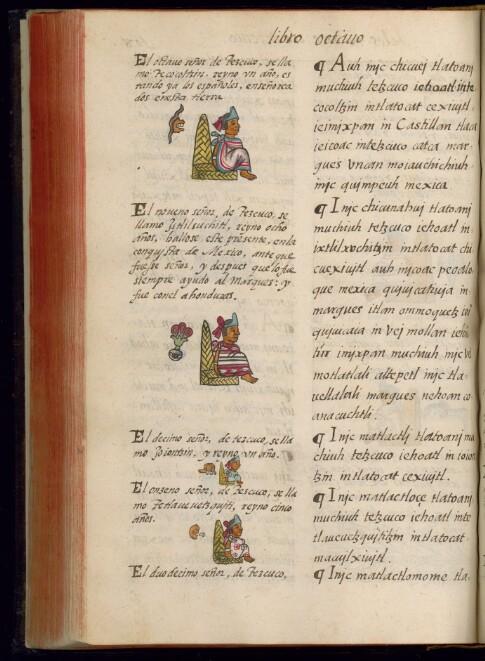 libro octauo
El octauo señor de Tezcuco, se lla
mo Tecocoltzin. reyno vn año, es
tando ya los españoles, enseñorea
dos enesta tierra.
El noueno señor, de Tezcuco, se
llamo Ixtlilxuchitl, reyno ocho
años, hallose este presente, enla
conquista de Mexico, ante que
fuesse señor, y despues que lo fue
siempre ayudo al Marques: y
fue conel ahonduras.
El decimo señor, de tezcuco, se lla
mo yoiontzin, y reyno, vn año.
El onzeno señor, de Tezcuco, se lla
mo Tetlaueuetzquiti, reyno cinco
años.
El duodecimo señor, de Tezcuco,
¶ Auh inic chicuei tlatoani
muchiuh tetzcuco iehoatl inte
cocoltzin intlatocat cexiuitl
ieimixpan in Castillan tlaca
ieicoac intetzcuco catca mar
ques vncan moiauchichiuh
inic quimpeuh mexica.
¶ Inic chicunahui tlatoani
muchiuh tetzcuco iehoatl in
ixtlilxochitzin intlatocat chi
cuexiuitl auh inicoac peoalo
que mexica
marques itlan
in vei mollan
inixpan muchiuh inic
motlatlali altepetl inic tla
uellalali marques nehoan co
anacuchtli.
¶ Inic matlactli tlatoani mu
chiuh tetzcuco iehoatl in ioion
tzin intlatocat cexiuitl.
¶ Inic matlactloçe tlatoani
muchiuh tetzcuco iehoatl inte
tlaueuetzquititzin intlatocat
macuilxiuitl.
¶ Inic matlactlomome tla-